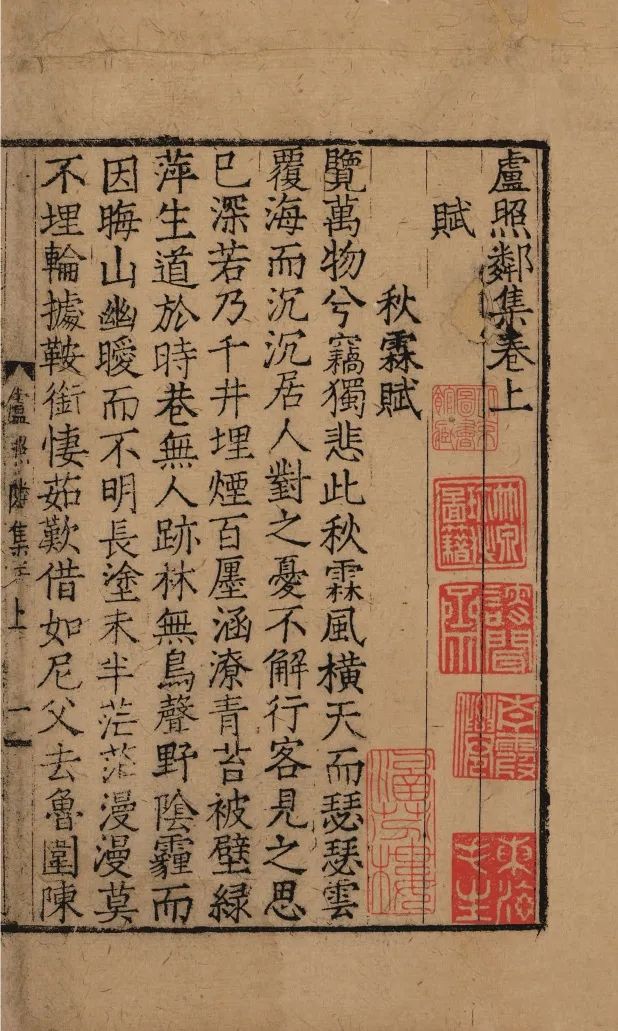 盧照鄰集卷上
賦
秋霖賦
覽萬物兮竊獨悲此秋霖風橫天而瑟瑟雲
覆海而沉沉居人對之憂不解行客見之思
已深若乃千井埋煙百廛涵潦青苔被壁綠
萍生道於時巷無人跡林無鳥聲野陰霾而
因晦山幽曖而不明長塗未半茫茫漫漫莫
不埋輪據鞍銜悽茹歎借如尼父去魯圍陳
盧照鄰集卷上 一
東海毛生